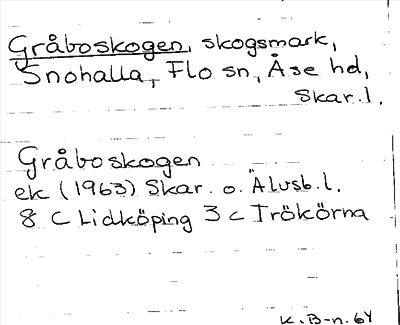 Gråboskogen, skogsmark,
Snohalla, Flo sn, Åse hd,
Skar.l.
Gråboskogen
ek (1963) Skar. o. Älvsb.l.
8 C Lidköping 3 c Trökörna
K. B-n. 64